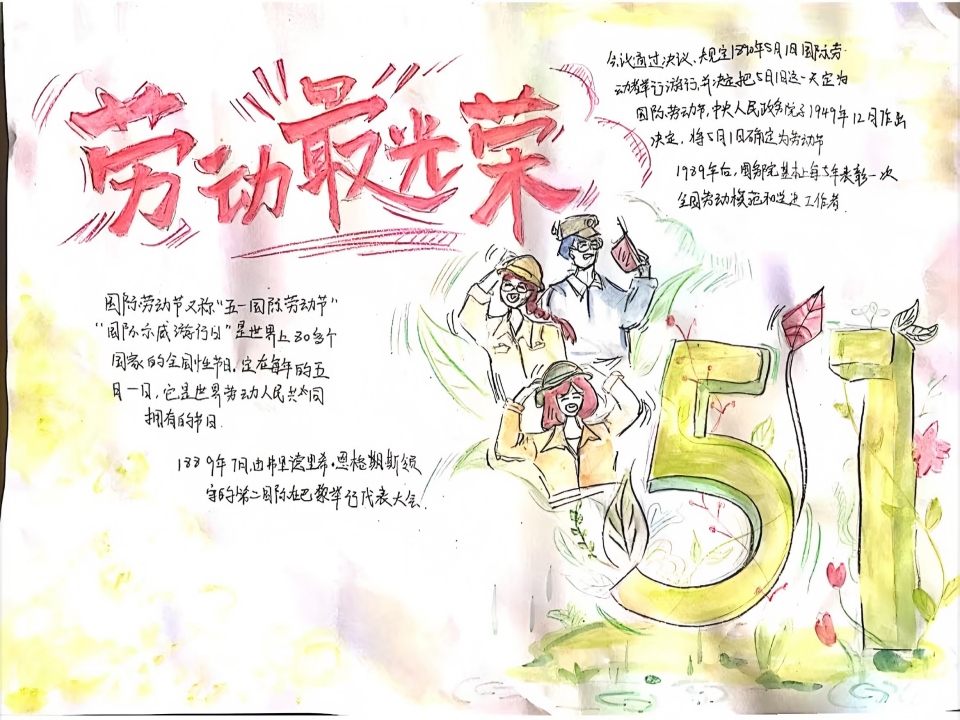 劳动最光荣
会议通过决议,规定1890年5月1日国际劳
动者举行游行,并决定把5月1日这一天定为
国际劳动节,中央人民政务院于1949年12月作出
决定,将5月1日确定为劳动节
1989年后,国务院基本上每5年表彰一次
全国劳动模范和先进工作者.
国际劳动节又称"五一国际劳动节"
"国际示威游行日"是世界上80多个
国家的全国性节日,定在每年的五
月一日,它是世界劳动人民共同
拥有的节日.
1889年7月,由弗里德里希·恩格斯领
导的第二国际在巴黎举行代表大会.
51